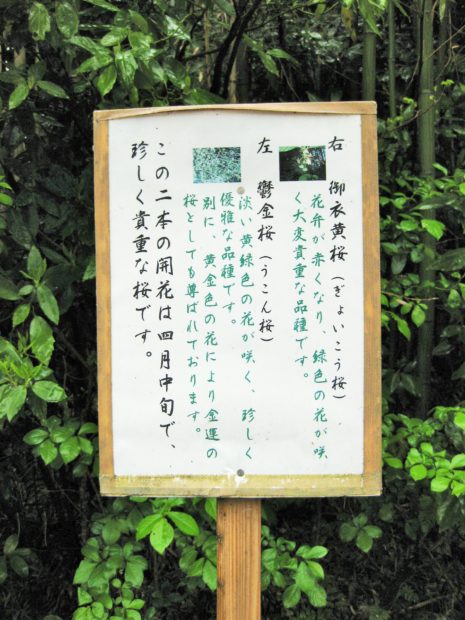 右　御衣黄桜（ぎょいこう桜）
花弁が赤くなり、緑色の花が咲
く大変貴重な品種です。
左　鬱金桜（うこん桜）
淡い黄緑色の花が咲く、珍しく
優雅な品種です。
別に、黄金色の花により金運の
桜としても尊ばれております。
この二本の開花は四月中旬で、
珍しく貴重な桜です。